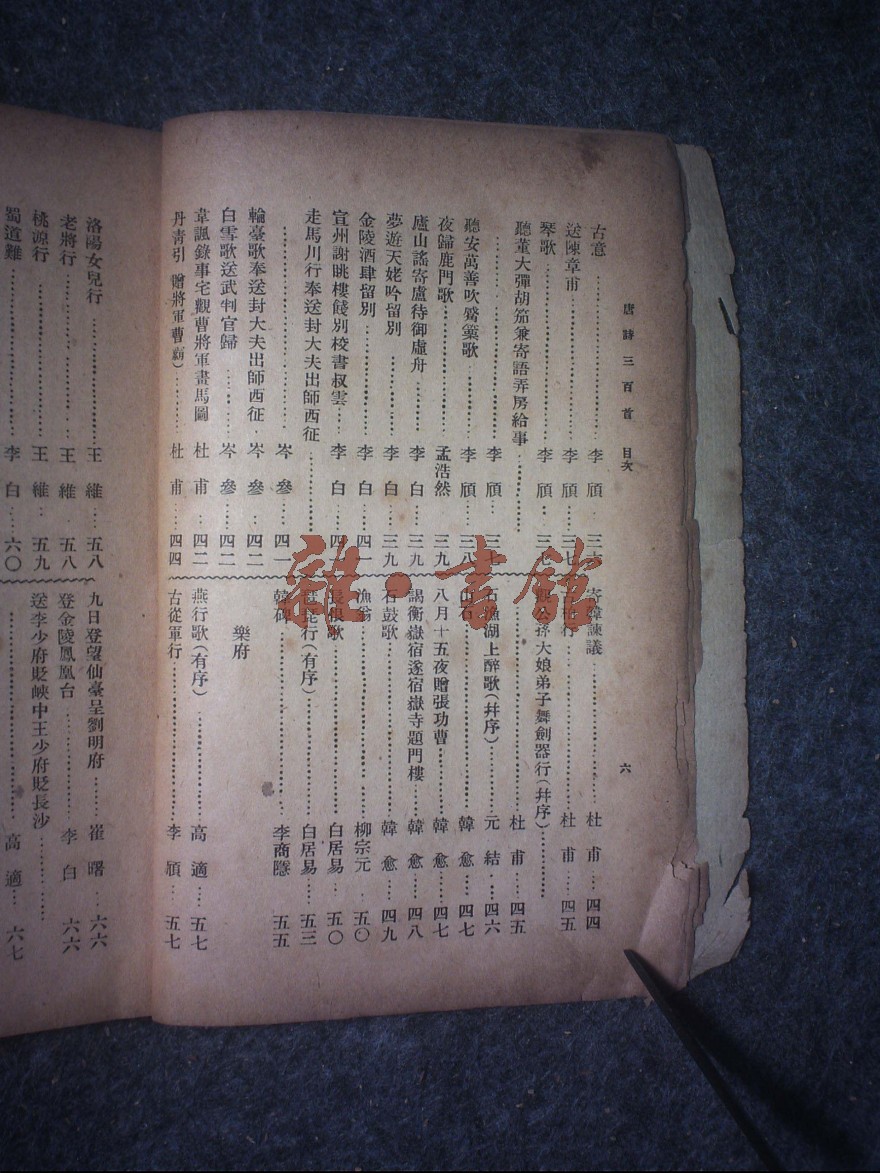 唐詩三百首 目次
六
古意……李頎
送陳章甫……李頎…三七
琴歌……李頎
聽董大彈胡笳兼寄語弄房給事……
……李頎
聽安萬善吹觱篥歌……李頎…三八
夜歸鹿門歌……孟浩然 三九
廬山謠寄盧待御虛舟 李白…三九
夢遊天姥吟留別……李白…三九
金陵酒肆留別……李白…四一
宣州謝眺樓餞別校書叔雲…李白
走馬川行奉送封大夫出師西征……
……岑參…四一
輪臺歌奉送封大夫出師西征 岑參…四二
白雪歌送武判官歸……岑參…四二
韋諷錄事宅觀曹將軍畫馬圖 杜甫…四二
丹青引 贈將軍曹霸)……杜甫…四四
寄韓諫議……杜甫…四四
行……杜甫…四五
公孫大娘弟子舞劍器行(幷序)……
……杜甫…四五
湖上醉歌(幷序)……元結…四六
……韓愈…四七
八月十五夜贈張功曹……韓愈…四七
謁衡嶽宿遂宿嶽寺題門樓…韓愈…四八
石鼓歌……韓愈…四九
漁翁……柳宗元…五〇
歌……白居易…五〇
行(有序)……白居易…五三
韓碑……李商隱…五五
樂府
燕行歌(有序)……高適…五七
古從軍行……李頎…五七
洛陽女兒行……王維…五八
老將行……王維…五八
桃源行……王維…五九
蜀道難……李白…六〇
九日登望仙臺呈劉明府…崔曙…六六
登金陵鳳凰台……李白…六六
送李少府貶峽中王少府貶長沙……
高適…六七
雜·書館